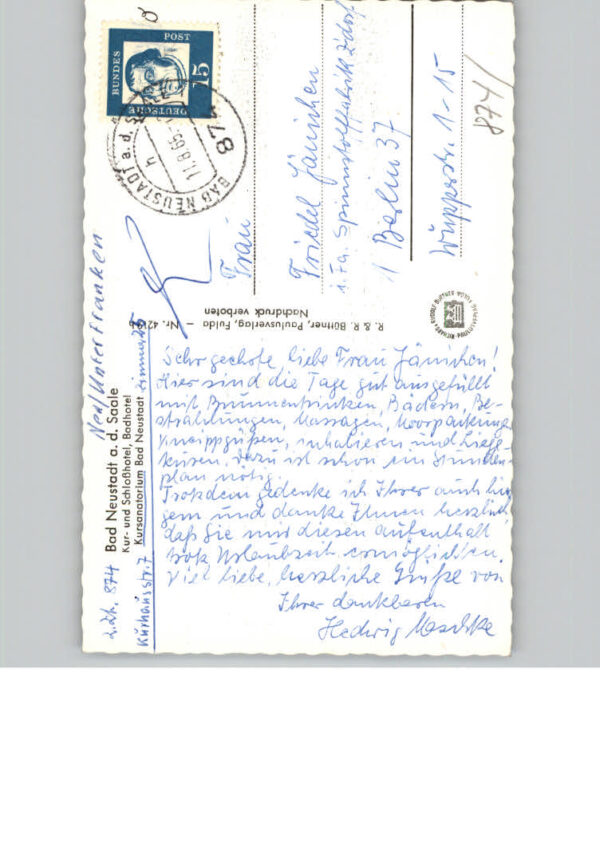 Neu/Unterfranken
z.Zt. 874 Bad Neustadt a. d. Saale
Kur- und Schloßhotel, Badhotel
Kursanatorium Bad Neustadt Zimmer
Kurhausstr. 7
Sehr geehrte, liebe Frau Jänichen!
Hier sind die Tage gut ausgefüllt
mit Brunnentrinken, Bädern, Be-
strahlungen, Massagen, Moorpackungen
Kneippgüßen, inhalieren und Liege-
kuren, dazu ist schon ein Stunden-
plan nötig.
Trotzdem gedenke ich Ihrer auch hier
gern und danke Ihnen herzlich
daß Sie mir diesen Aufenthalt
trotz Urlaubszeit ermöglichten.
Viel liebe, herzliche Grüße von
Ihrer dankbaren
Hedwig Maschke
R. & R. Büttner, Paulusverlag, Fulda – Nr.
Nachdruck verboten
DEUTSCHE
BUNDES
POST
15
874
BAD NEUSTADT a. d.
11.8.65
Frau
Friedel Jänichen
i. Fa. Spinnstofffabrik Zdorf
1 Berlin 37
Wupperstr. 1-15
874/